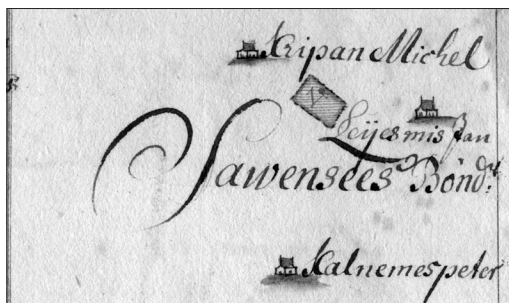 Kripan Michel
Leijesmis Jan
Sawensees Bönd:r
Kalnemes peter